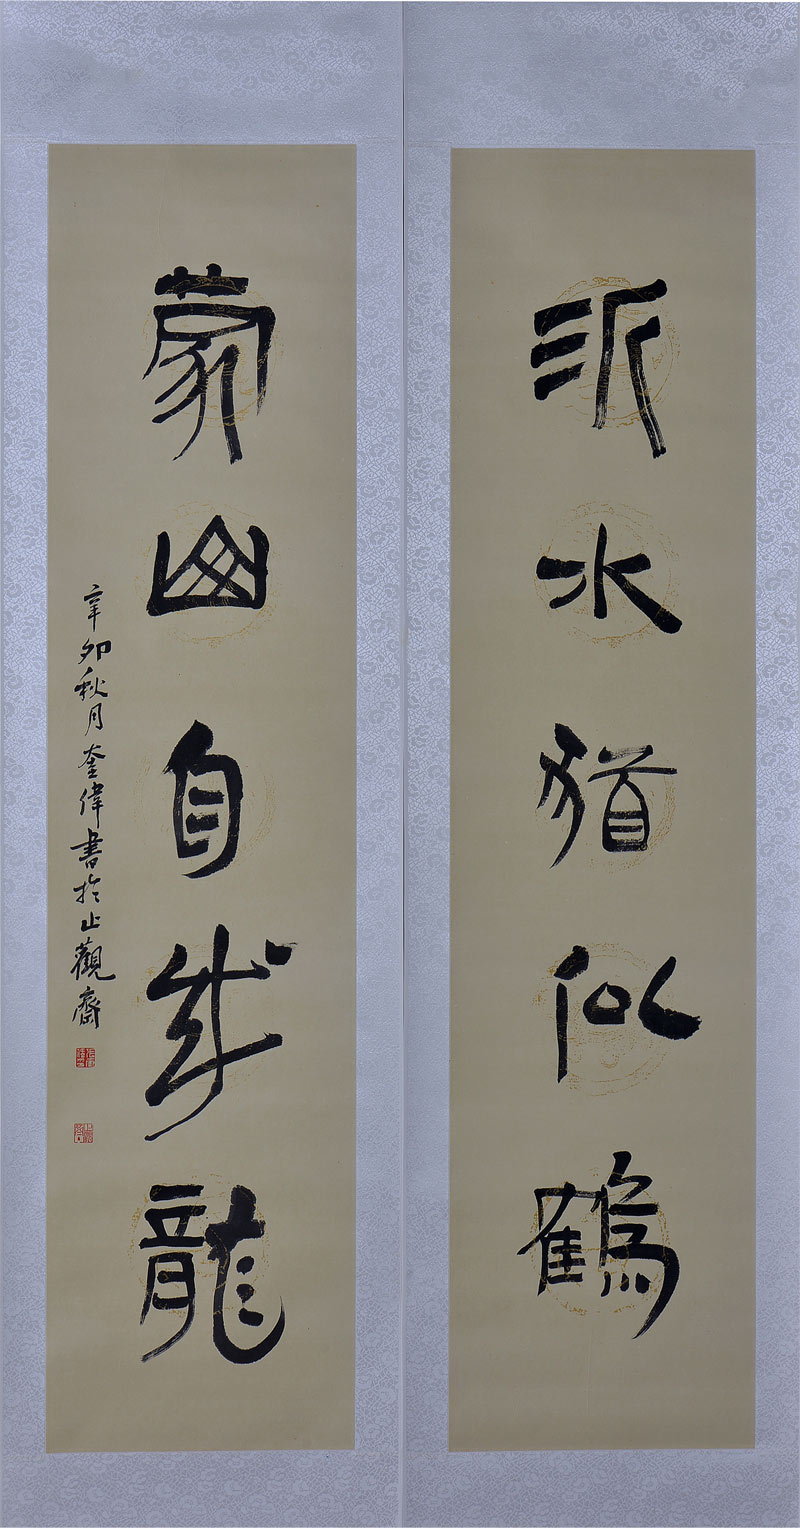 沂水猶似鶴
蒙山自成龍
辛卯秋月奎偉書於止觀齋